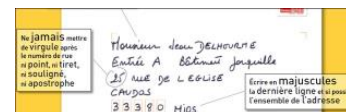 Ne jamais mettre
de virgule après
le numéro de rue
ni point, ni tiret,
ni souligné,
ni apostrophe
Monsieur Jean DELHOURME
Entrée A Bâtiment Jonquille
25 RUE DE L EGLISE
CAUDOS
33380 MIOS
Écrire en majuscules
la dernière ligne et si poss
l'ensemble de l'adresse